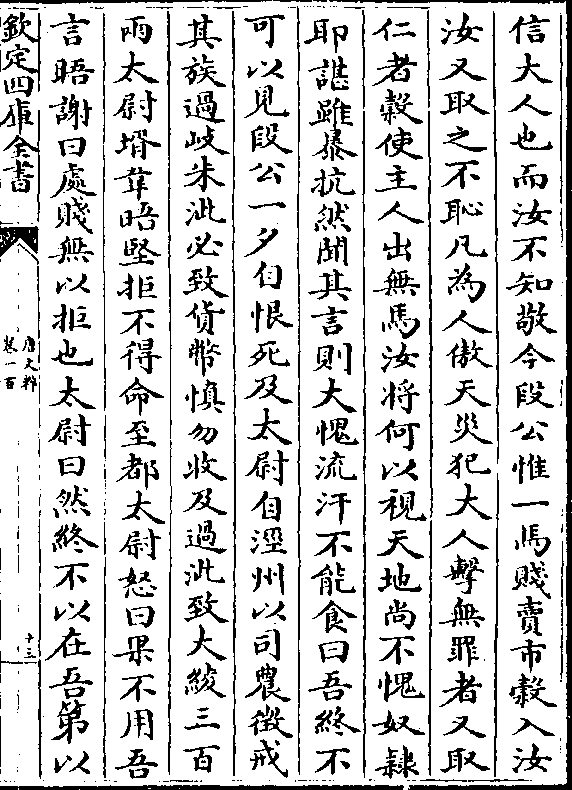 信大人也而汝不知敬今段公惟一馬賤賣市穀入汝
汝又取之不恥凡為人傲天災犯大人擊無罪者又取
仁者穀使主人出無馬汝將何以視天地尚不愧奴隸
耶諶雖暴抗然聞其言則大愧流汗不能食曰吾終不
可以見段公一夕自恨死及太尉自涇州以司農徵戒
其族過岐朱泚必致貨幣慎勿收及過泚致大綾三百
兩太尉壻韋晤堅拒不得命至都太尉怒曰果不用吾
言晤謝曰處賤無以拒也太尉曰然終不以在吾第以
欽定四庫全書
唐文粹
卷一百
十三